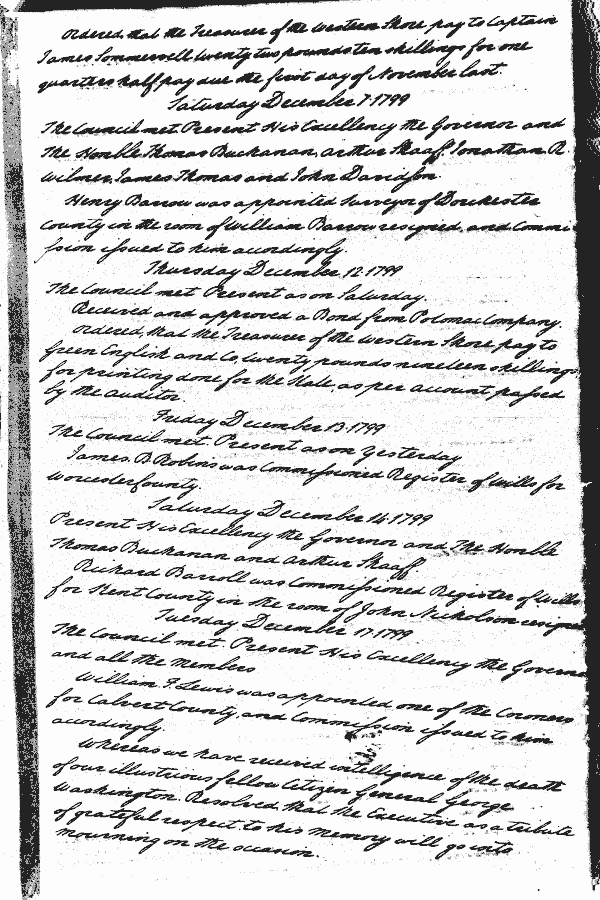 Ordered, that the Treasurer of the Western Shore pay to Captain
James Sommervell twenty two pounds ten shillings for one
quarters half pay due the first day of November last.
Saturday December 7. 1799
The Council met. Present His Excellency the Governor and
The Honble. Thomas Buchanan, Arthur Shaaff, Jonathan R.
Wilmer, James Thomas and John Davidson.
Henry Barrow was appointed Surveyor of Dorchester
County in the room of William Barrow resigned, and Commi
ssion issued to him acordingly.
Thursday December 12. 1799
The Council met Present as on Saturday.
Received and approved a Bond from Potomac Company.
Ordered, that the Treasurer of the Western Shore pay to
Green English and Co twenty pounds nineteen shillings,
for printing done for the State, as per account passed
by the Auditor.
Friday December 13. 1799
The Council met. Present as on Yesterday
James B Robins was Commissioned Register of Wills for
Worcester County.
Saturday December 14. 1799
Present His Excellency the Governor and The Honble
Thomas Buchanan and Arthur Shaaff
Richard Barroll was Commissioned Register of Wills
for Kent County in the room of John Nicholson resigned
Tuesday December 17. 1799
The Council met. Present His Excellency the Governor
and all the members
William F. Lewis was appointed one of the Coroners
for Calvert County, and Commission issued to him
acordingly.
Whereas we have received intelligence of the death
of our illustrious fellow Citizen General George
Washington. Resolved, that the Executive as a tribute
of grateful respect to his memory will go into
mourning on the occasion.